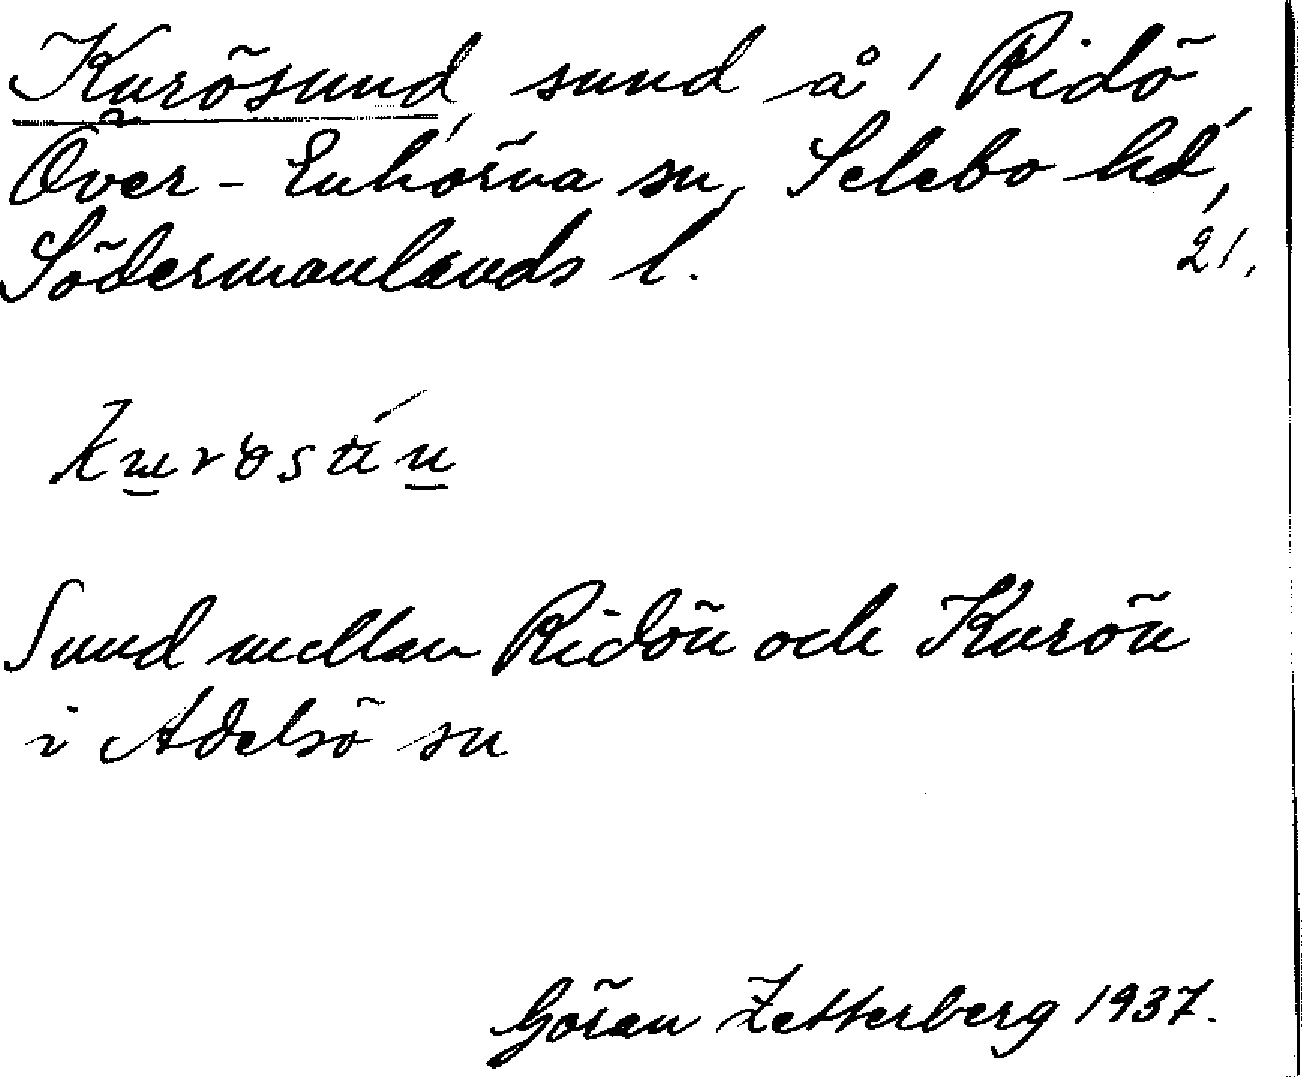 Kurösund, sund å 1 Ridö,
Över-Enhörna sn, Selebo hd,
Södermanlands l. 21.
Sund mellan Ridön och Kurön
i Adelsö sn
Göran Zetterberg 1937.